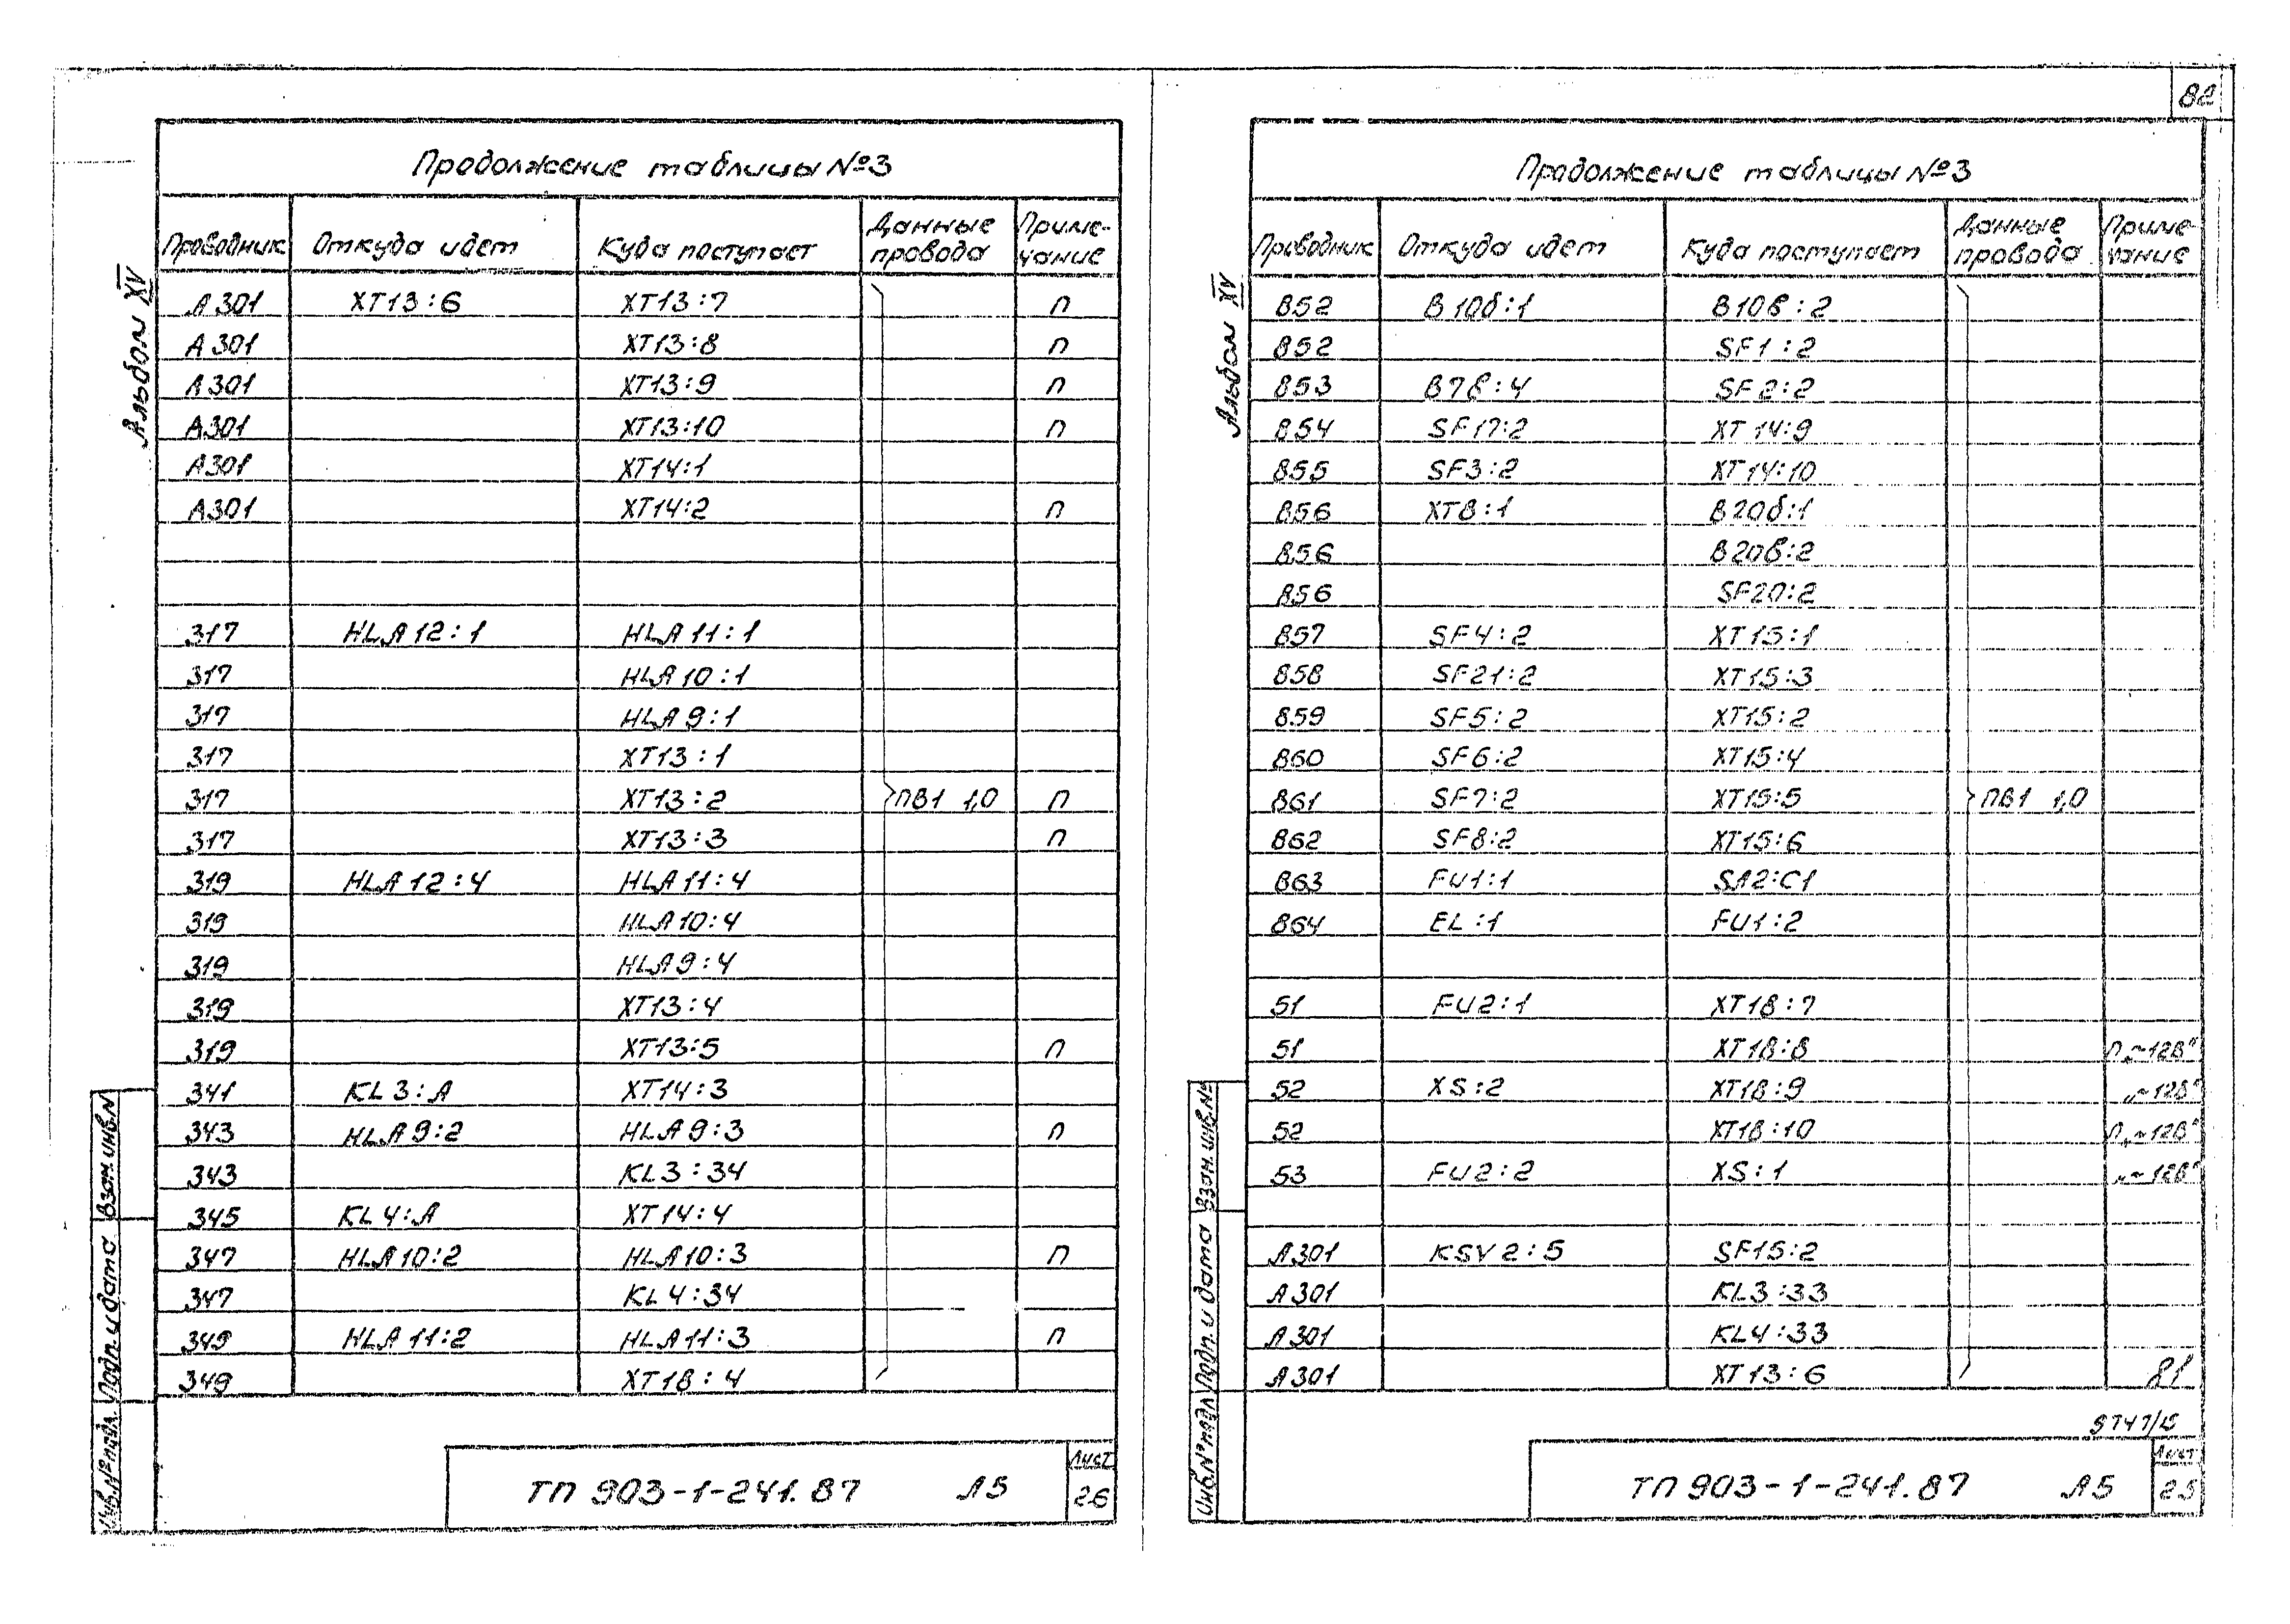 82
Продолжение таблицы №3
Проводник Откуда идет Куда поступает Данные провода Приме-чание
А301 XT13:6 XT13:7 П
А301 XT13:8 П
А301 XT13:9 П
А301 XT13:10 П
А301 XT14:1
А301 XT14:2 П
317 HLA12:1 HLA11:1
317 HLA10:1
317 HLA9:1
317 XT13:1
317 XT13:2 ПВ1 1,0 П
317 XT13:3 П
319 HLA12:4 HLA11:4
319 HLA10:4
319 HLA9:4
319 XT13:4
319 XT13:5 П
341 KL3:A XT14:3
343 HLA9:2 HLA9:3 П
343 KL3:34
345 KL4:A XT14:4
347 HLA10:2 HLA10:3 П
347 KL4:34
349 HLA11:2 HLA11:3 П
349 XT18:4
Альбом XV
Взам.инв.N
Подп. и дата
Инв.№ подл.
ТП 903-1-241.87 А5
Лист
26
Продолжение таблицы №3
Проводник Откуда идет Куда поступает Данные провода Приме-чание
852 В10б:1 В10в:2
852 SF1:2
853 В7в:4 SF2:2
854 SF17:2 XT14:9
855 SF3:2 XT14:10
856 XT8:1 В20б:1
856 В20в:2
856 SF20:2
857 SF4:2 XT15:1
858 SF21:2 XT15:3
859 SF5:2 XT15:2
860 SF6:2 XT15:4
861 SF7:2 XT15:5 ПВ1 1,0
862 SF8:2 XT15:6
863 FU1:1 SA2:C1
864 EL:1 FU1:2
51 FU2:1 XT18:7
51 XT18:8 П„~12В"
52 XS:2 XT18:9 „~12В"
52 XT18:10 П„~12В"
53 FU2:2 XS:1 „~12В"
А301 KSV2:5 SF15:2
А301 KL3:33
А301 KL4:33
А301 XT13:6
81
Альбом XV
Взам. инв.№
Подп. и дата
Инв.№ подл
9747/15
ТП 903-1-241.87 А5
Лист
25